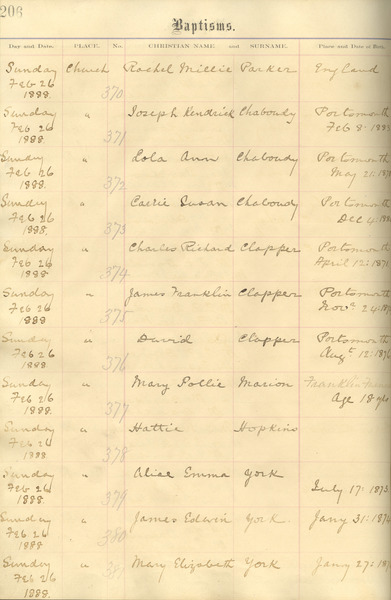 206
Baptisms.
Day and Date. PLACE. No. CHRISTIAN NAME and SURNAME. Place and Date of Birth.
Sunday Church Rachel Millie Parker England
Feb 26
1888. 370
Sunday " Joseph Kendrick Chaboudy Portsmouth
Feb 26 Feb 8.
1888. 371
Sunday " Lola Ann Chaboudy Portsmouth
Feb 26 May 21.
1888. 372
Sunday " Carrie Susan Chaboudy Portsmouth
Feb 26 Dec 4.
1888. 373
Sunday " Charles Richard Clapper Portsmouth
Feb 26 April 12:
1888 374
Sunday " James Franklin Clapper Portsmouth
Feb 26 Nov. 24:
1888 375
Sunday " David Clapper Portsmouth
Feb 26 Aug. 12:
1888. 376
Sunday " Mary Pollie Marion Franklin
Feb 26 Age 18
1888. 377
Sunday " Hattie Hopkins
Feb 26
1888. 378
Sunday " Alice Emma York
Feb 26 July 17:
1888. 379
Sunday " James Edwin York. Jany 31:
Feb 26
1888. 380
Sunday " Mary Elizabeth York Jany 27:
Feb 26
1888. 381